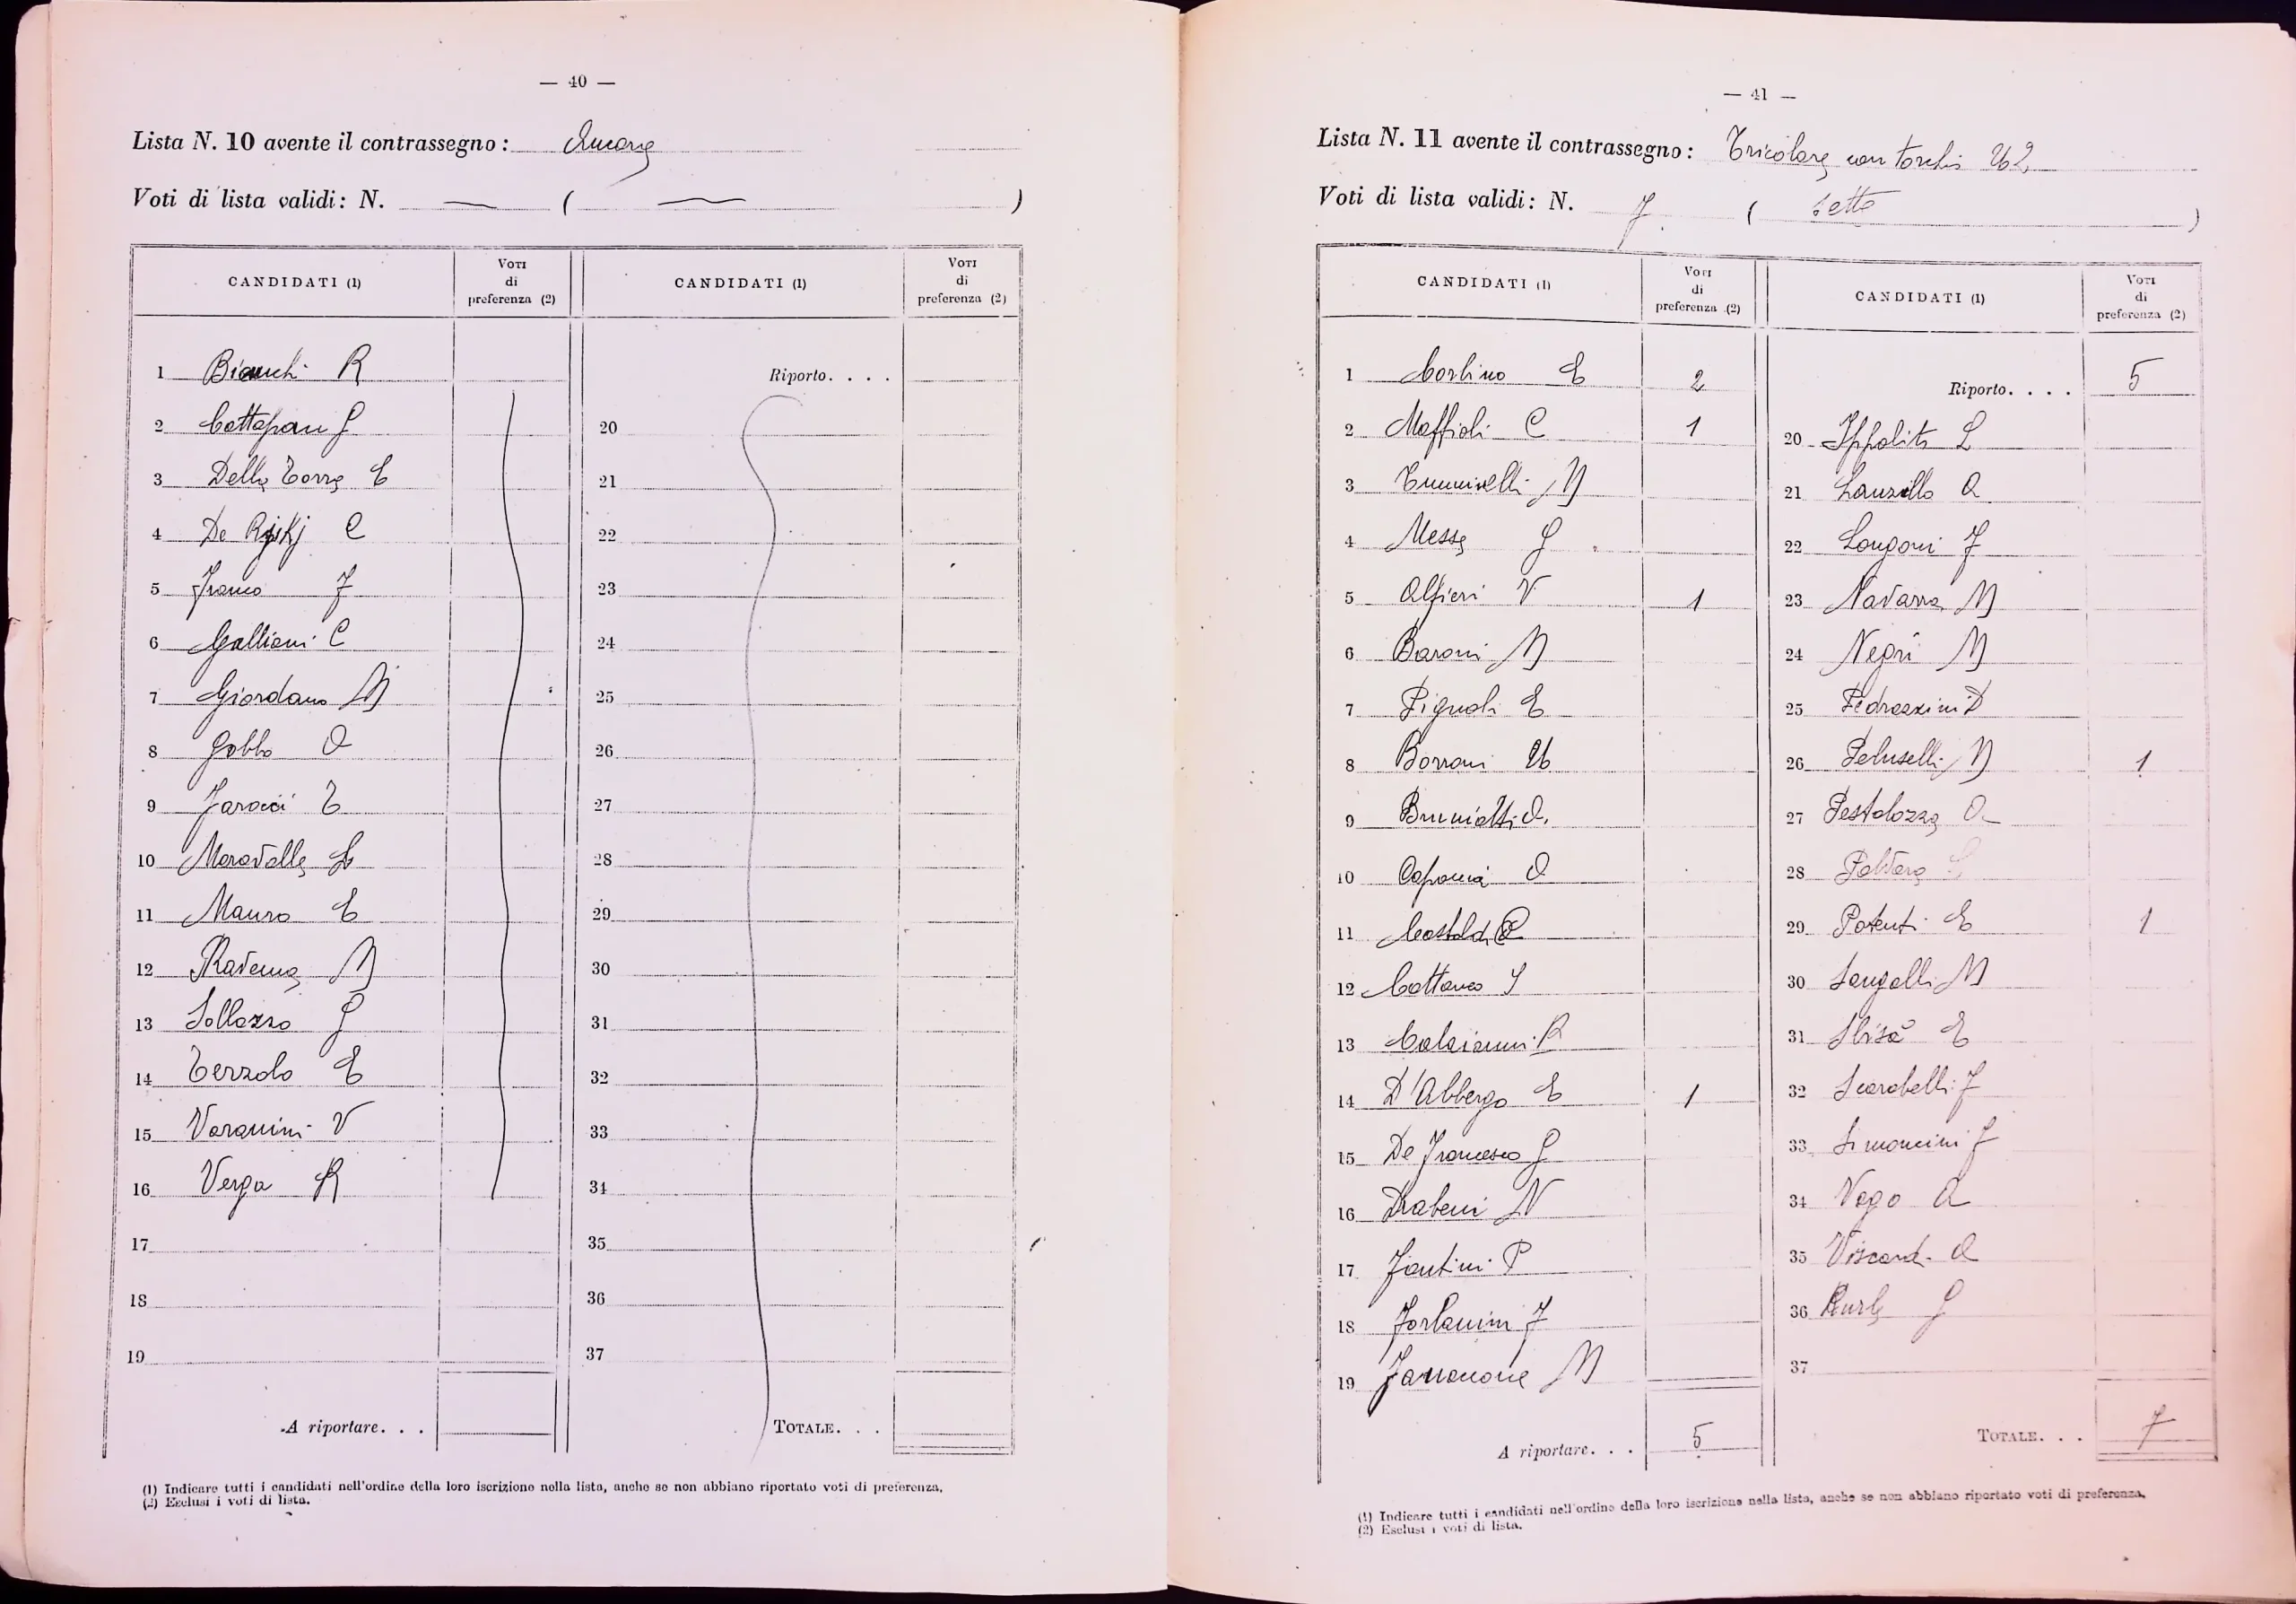 — 40 —
Lista N. 10 avente il contrassegno:
Voti di lista validi: N. — ( — )
CANDIDATI (1) Voti di preferenza (2) CANDIDATI (1) Voti di preferenza (2)
Riporto. . . .
1 Bianchi R
2 G
3 Della Torre E
4 De C
5 Franco F
6 Galliani C
7 Giordano M
8 Gobbo O
9
10 Moravalle L
11 Mauro E
12 M
13 Sollazzo G
14 Terzolo E
15 Varanini V
16 Verga R
17
18
19
A riportare. . .
20
21
22
23
24
25
26
27
28
29
30
31
32
33
34
35
36
37
TOTALE. . .
(1) Indicare tutti i candidati nell'ordine della loro iscrizione nella lista, anche se non abbiano riportato voti di preferenza.
(2) Esclusi i voti di lista.
— 41 —
Lista N. 11 avente il contrassegno: Tricolore con
Voti di lista validi: N. 7 ( sette )
CANDIDATI (1) Voti di preferenza (2) CANDIDATI (1) Voti di preferenza (2)
1 Corbino E 2
2 Maffioli C 1
3 M
4 Messe G
5 Alfieri V 1
6 Baroni M
7 Pignoli E
8 Borroni U
9
10 O
11
12 Cattaneo S
13 R
14 D'Abbergo E 1
15 De Francesco G
16 N
17 Fantini P
18 Forlanini F
19 M
A riportare. . . 5
Riporto. . . . 5
20 Ippolito L
21 Lanzillo A
22 Longoni F
23 Navarra M
24 Negri M
25 Pedrazzini D
26 Peluselli M 1
27 Pestalozza A
28
29 Potenti E 1
30 Sangalli M
31 Sbisà E
32 Scarabelli F
33 Simoncini F
34 Vago A
35 Viscardi A
36 G
37
TOTALE. . . 7
(1) Indicare tutti i candidati nell'ordine della loro iscrizione nella lista, anche se non abbiano riportato voti di preferenza.
(2) Esclusi i voti di lista.